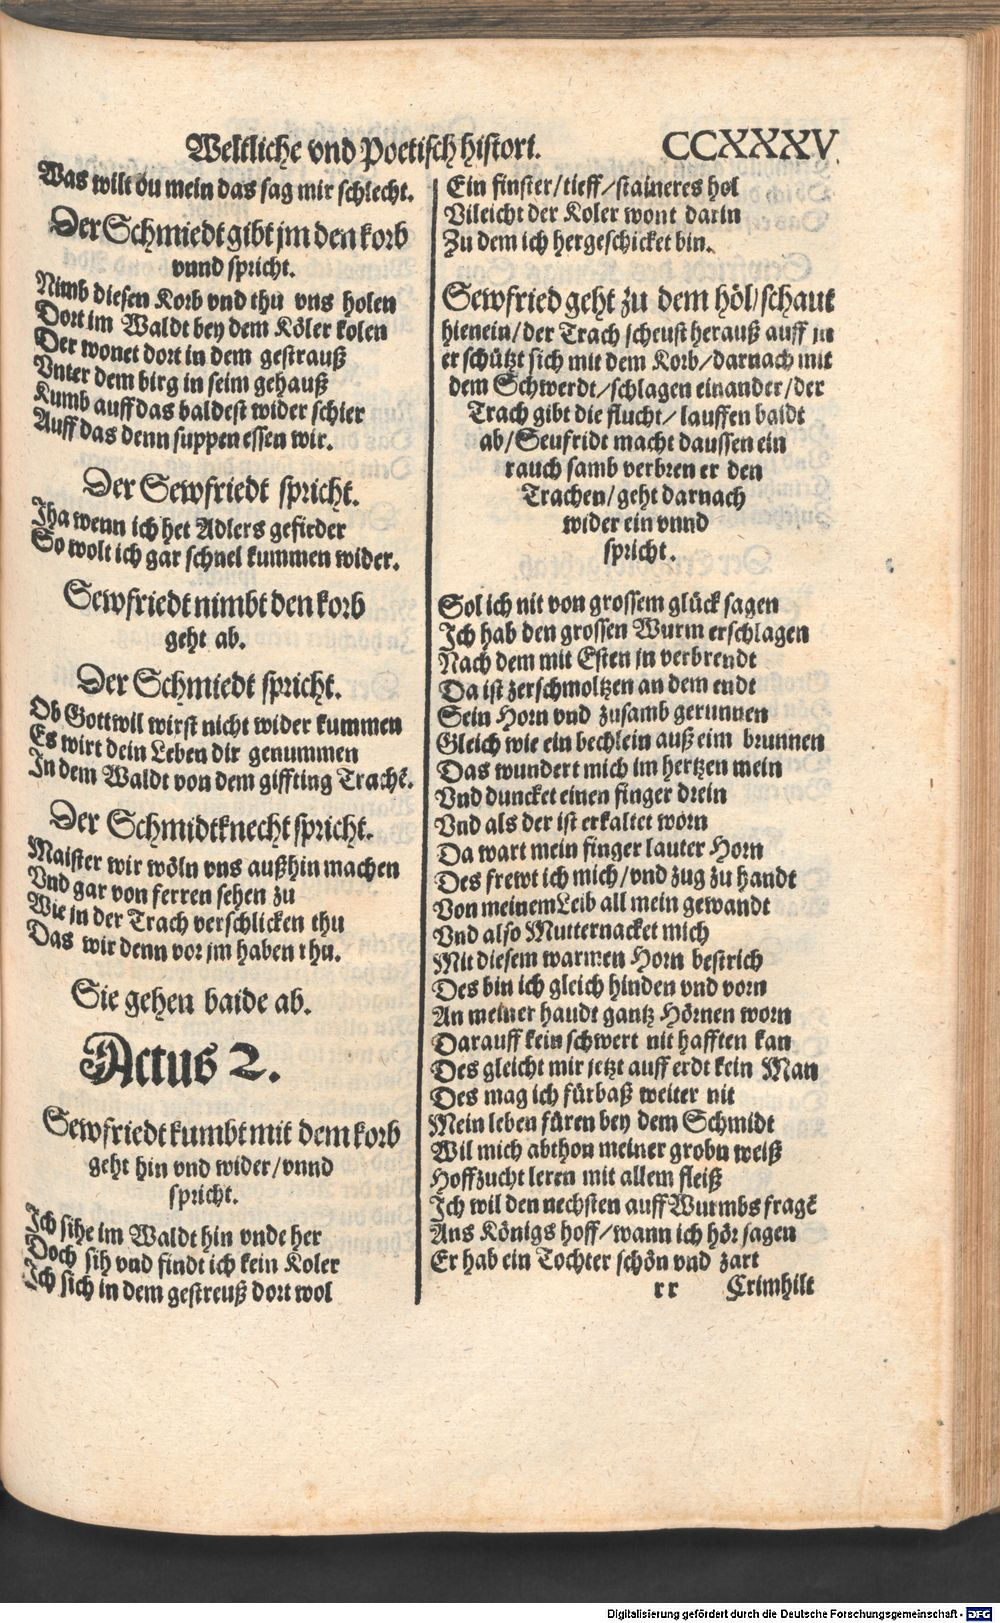 Weltliche vnd Poetisch histori.
CCXXXV.
Was wilt du mein das sag mir schlecht.
Der Schmiedt gibt jm den korb
vnnd spricht.
Nimb diesen Korb vnd thu vns holen
Dort im Waldt bey dem Köler kolen
Der wonet dort in dem gestrauß
Vnter dem birg in seim gehauß
Kumb auff das baldest wider schier
Auff das denn suppen essen wir.
Der Sewfriedt spricht.
Jha wenn ich het Adlers gefirder
So wolt ich gar schnel kummen wider.
Sewfriedt nimbt den korb
geht ab.
Der Schmiedt spricht.
Ob Gott wil wirst nicht wider kummen
Es wirt dein Leben dir genummen
In dem Waldt von dem giffting Trachē.
Der Schmidtknecht spricht.
Maister wir wöln vns außhin machen
Vnd gar von ferren sehen zu
Wie in der Trach verschlicken thu
Das wir denn vor jm haben rhu.
Sie gehen baide ab.
Actus 2.
Sewfriedt kumbt mit dem korb
geht hin vnd wider/vnnd
spricht.
Ich sihe im Waldt hin vnde her
Doch sih vnd findt ich kein Koler
Ich sich in dem gestreuß dort wol
Ein finster/tieff/staineres hol
Vileicht der Koler wont darin
Zu dem ich hergeschicket bin.
Sewfried geht zu dem höl/schaut
hienein/der Trach scheust herauß auff jn
er schützt sich mit dem Korb/darnach mit
dem Schwerdt/schlagen einander/der
Trach gibt die flucht/lauffen baidt
ab/Seufridt macht daussen ein
rauch samb verbren er den
Trachen/geht darnach
wider ein vnnd
spricht.
Sol ich nit von grossem glück sagen
Ich hab den grossen Wurm erschlagen
Nach dem mit Esten jn verbrendt
Da ist zerschmoltzen an dem endt
Sein Horn vnd zusamb gerunnen
Gleich wie ein bechlein auß eim brunnen
Das wundert mich im hertzen mein
Vnd duncket einen finger drein
Vnd als der ist erkaltet worn
Da wart mein finger lauter Horn
Des frewt ich mich/vnd zug zu handt
Von meinem Leib all mein gewandt
Vnd also Mutternacket mich
Mit diesem warmen Horn bestrich
Des bin ich gleich hinden vnd vorn
An meiner haudt gantz Hörnen worn
Darauff kein schwert nit hafften kan
Des gleicht mir jetzt auff erdt kein Man
Des mag ich fürbaß weiter nit
Mein leben füren bey dem Schmidt
Wil mich abthon meiner grobn weiß
Hoffzucht leren mit allem fleiß
Ich wil den nechsten auff Wurmbs fragē
Ans Königs hoff/wann ich hör sagen
Er hab ein Tochter schön vnd zart
rr
Crimhilt
Digitalisierung gefördert durch die Deutsche Forschungsgemeinschaft - DFG